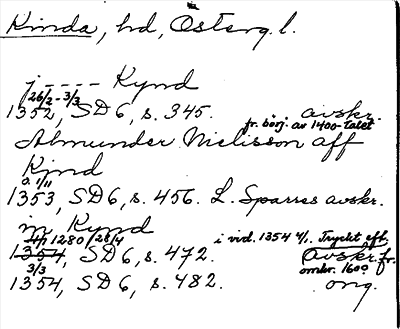 Kinda, hd, Österg. l.
j - - - - Kynd
26/2 - 3/3
1352, SD 6, s. 345. avskr.
fr. börj. av 1400-talet
Abmunder Niclisson aff
Kynd
o. 1/11
1353, SD 6, s. 456. L. Sparres avskr.
in Kynd
1280 26/4 i vid. 1354 4/1. Tryckt eft.
1354, SD 6, s. 472. avskr. fr.
3/3 omkr. 1600
1354, SD 6, s. 482. orig.